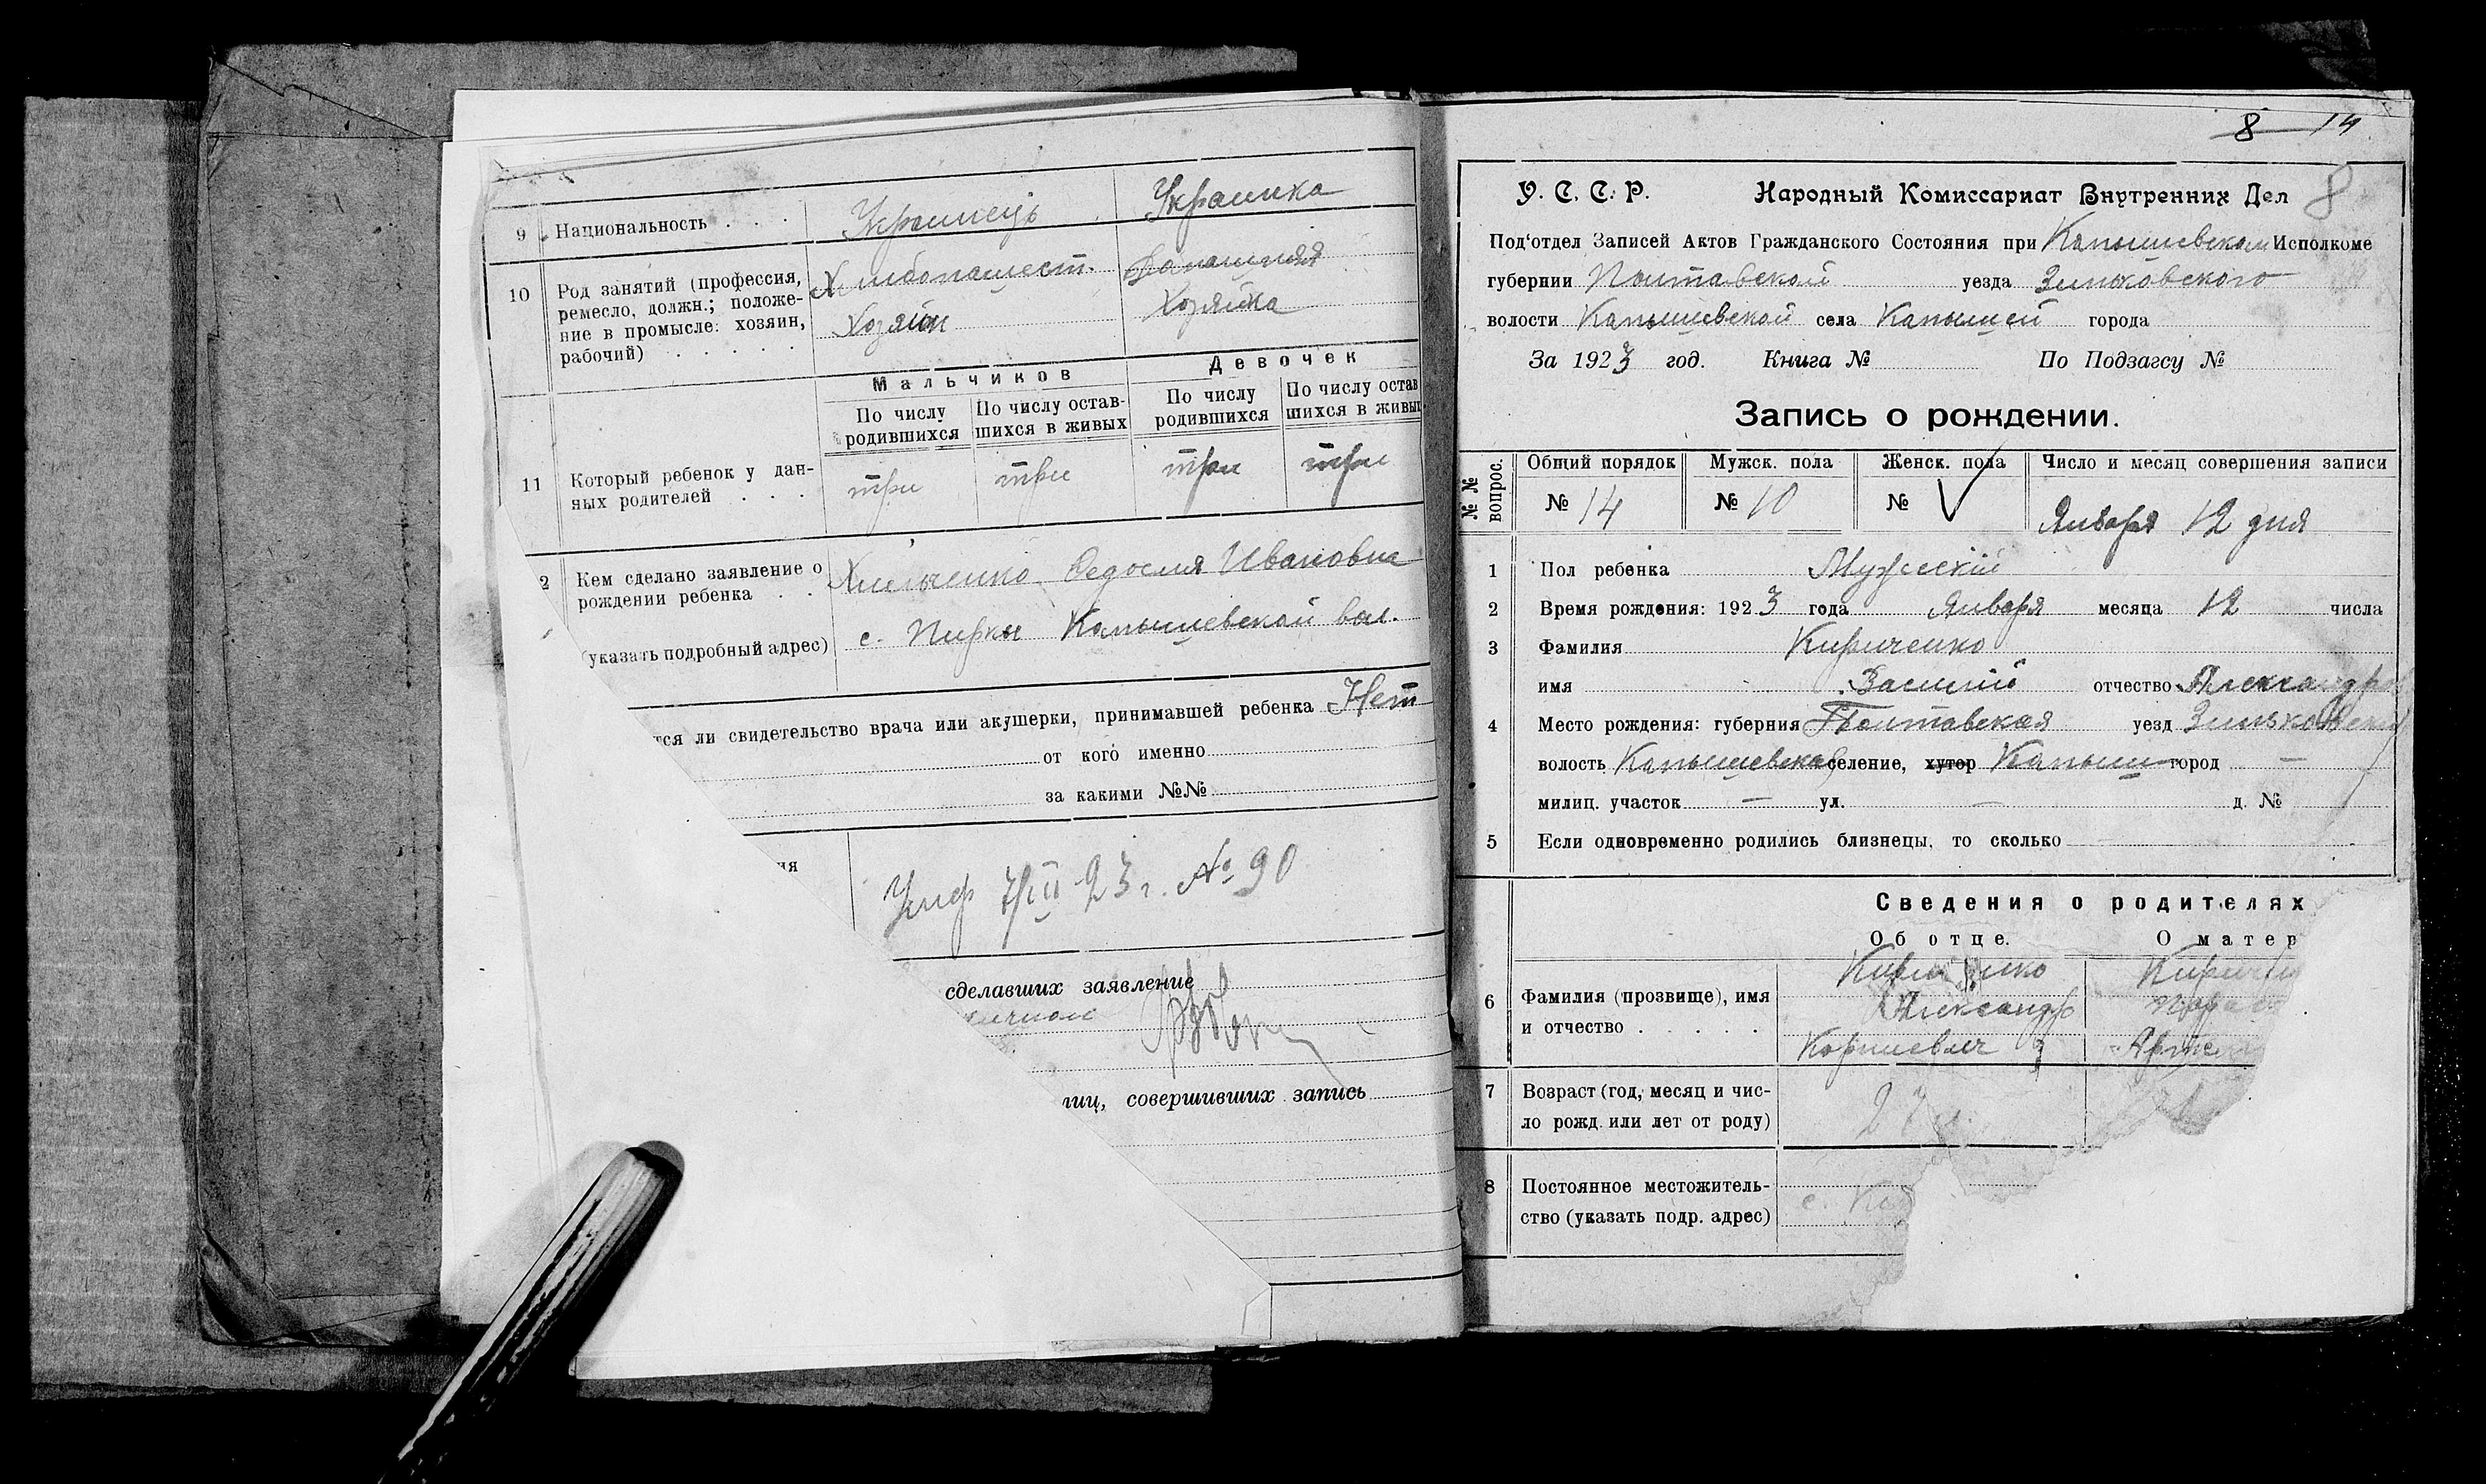 9 Национальность . . . Украинець Украинка
10 Род занятий (профессия, ремесло, должн.; положе-
ние в промысле: хозяин,
рабочий) . . . . .
Хлибопашест. Домашняя
Хозяин Хозяйка
Мальчиков Девочек
По числу родившихся По числу остав-шихся в живых По числу родившихся По числу остав шихся в живых
11 Который ребенок у дан-
ных родителей . . .
три три три три
2 Кем сделано заявление о
рождении ребенка . .
Хильченко Федосия Ивановна
(указать подробный адрес)
с. Пирки Камышевской вол.
тся ли свидетельство врача или акушерки, принимавшей ребенка Нет
от кого именно
за какими №№
ия
23 г. № 90
сделавших заявление
лиц, совершивших запись
8 14
У. С. С. Р. Народный Комиссариат Внутренних Дел 8
Под'отдел Записей Актов Гражданского Состояния при Исполкоме
губернии Полтавской уезда Зиньковского
волости села города
За 1923 год. Книга № По Подзагсу №
Запись о рождении.
№ № вопрос. Общий порядок Мужск. пола Женск. пола Число и месяц совершения записи
№ 14 № 10 № V Января 12 дня
1 Пол ребенка Мужескій
2 Время рождения: 1923 года Января месяца 12 числа
3 Фамилия Кириченко
имя Василий отчество Александро
4 Место рождения: губерния Полтавская уезд Зиньковский
волость селение, хутор город —
милиц. участок — ул. — д. №
5 Если одновременно родились близнецы, то сколько
Сведения о родителях
Об отце. О матер
6 Фамилия (прозвище), имя
и отчество . . . . .
Кириченко
Александр
Корниевич
7 Возраст (год, месяц и чис-
ло рожд. или лет от роду)
27
8 Постоянное местожитель-
ство (указать подр. адрес)
с. Ка